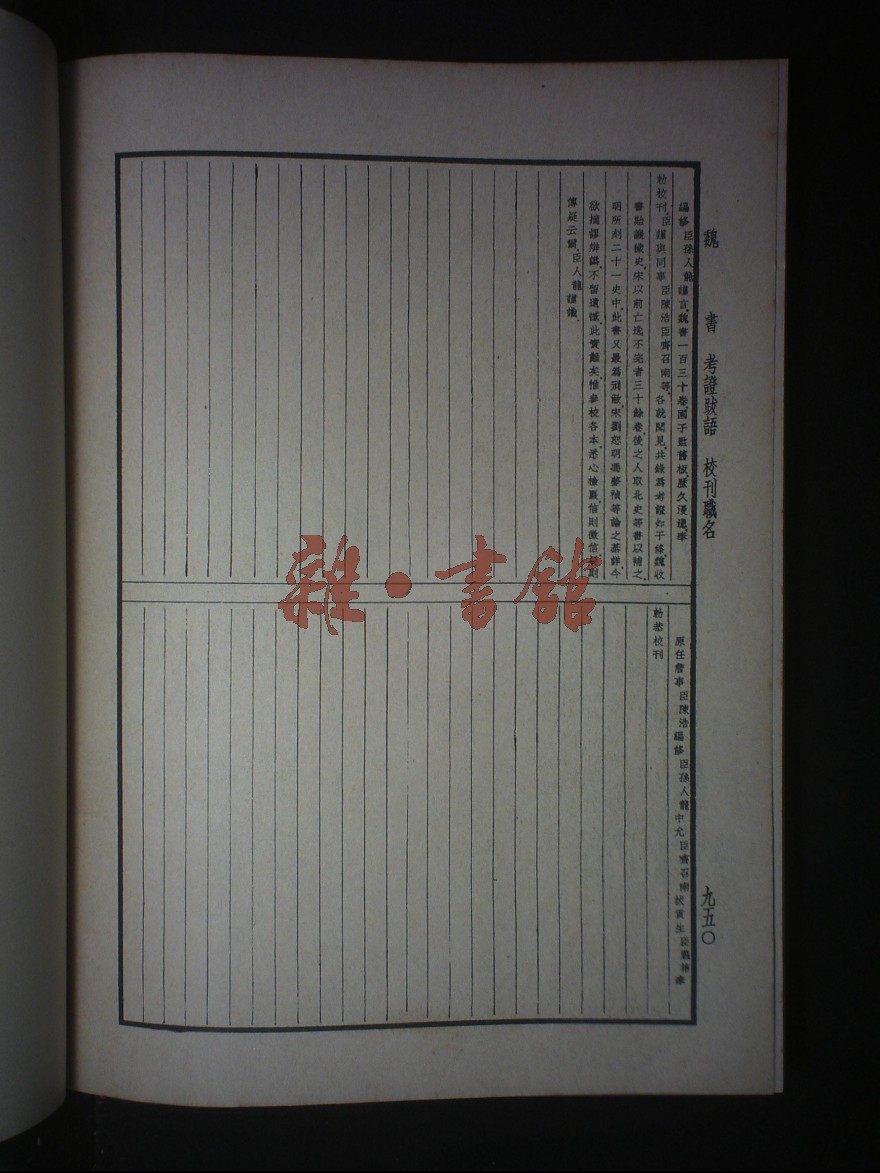 魏書 考證跋語 校刊職名
九五〇
編修臣孫人龍謹言魏書一百三十卷國子監舊板歷久漫漶奉
勅校刊臣謹與同事臣陳浩臣齊召南等各就聞見共錄為考證如干條魏收
書貽譏穢史宋以前亡逸不完者三十餘卷後之人取北史等書以補之
明所刻二十一史中此書又最為刓敝宋劉恕明馮夢禎等論之綦詳今
欲摘謬辨譌不留遺憾此實難矣惟參校各本悉心檢覈信則徵信疑則
傳疑云爾臣人龍謹識
原任詹事臣陳浩編修臣孫人龍中允臣齊召南拔貢生臣 奉
勅恭校刊
雜·書館